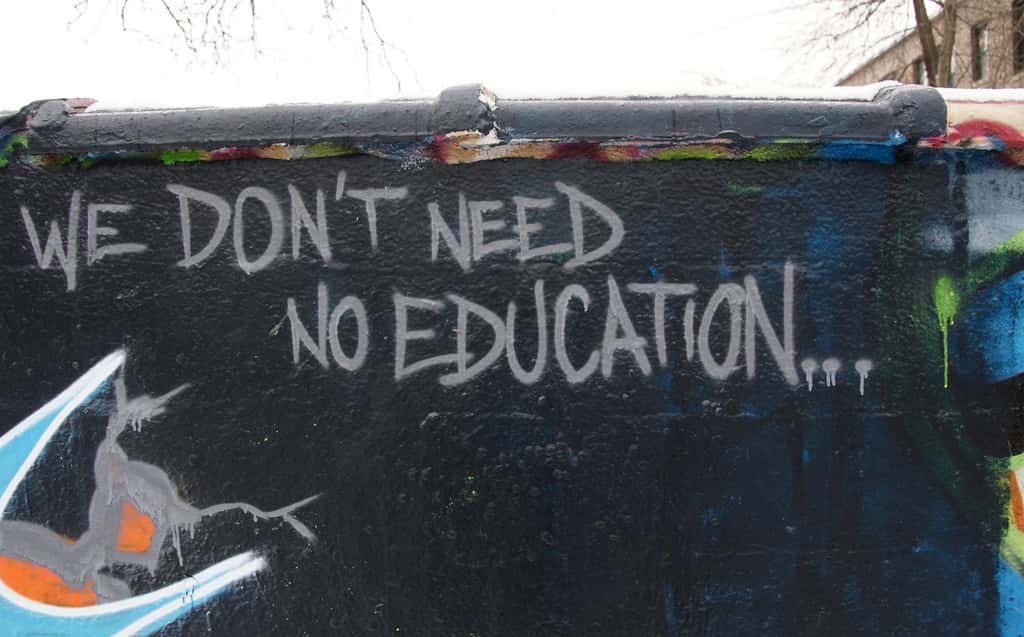 WE DON'T NEED
NO EDUCATION...